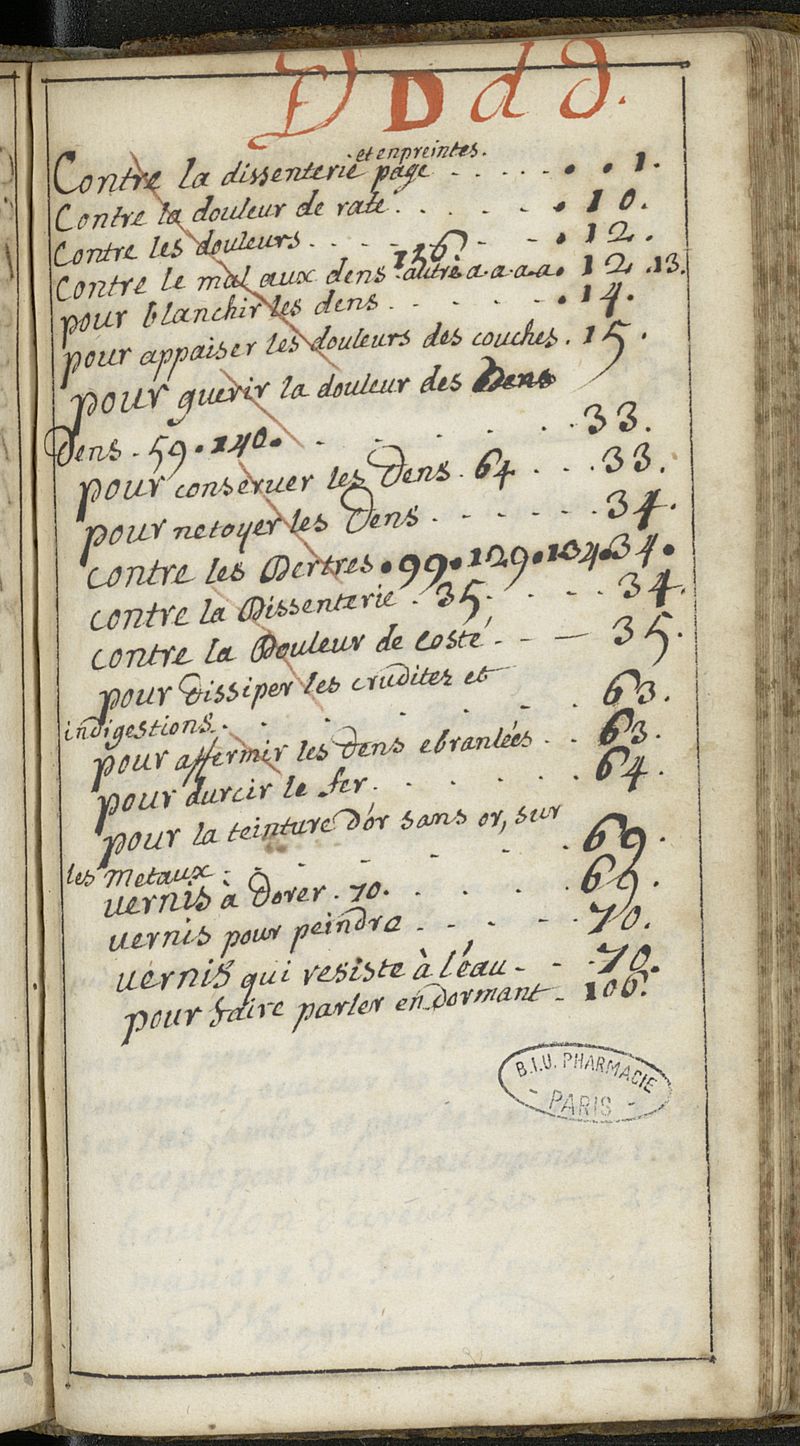 D D d d.
et enpreintes.
Contre la dissenterie page - . - . . . . 1.
Contre la douleur de rate . . . - - . 10.
Contre les douleurs . . - - . - - . 12.
126.
Contre le mal aux dens autre a.a.a.a. 12 .13.
pour blanchir les dens . . - . - - . 14.
pour appaiser les douleurs des couches . 15.
pour guerir la douleur des Dens
Dens . 59 . 140 . . . . . . . . 33.
pour conseruer les Dens . 64 . . . 33.
pour netoyer les Dens . - - - . . 34.
contre les Dertres . 99 . 129 . 134 . 34.
contre la Dissenterie . 35 . . - - . 34.
contre la Douleur de costé . - - 35.
pour dissiper les cruditez et
indigestions . . . . . - . . 63.
pour affermir les dens ebranlées . . 63.
pour durcir le fer . . . . . . . 64.
pour la teinture d'ór sans or, sur
les Metaux . . - . . - . 69.
uernis à Dorer . 70 . . . . . 69.
uernis pour peindre . . . - - 70.
uernis qui resiste à l'éau - . - 70.
pour faire parler en dormant - 106.
B.I.U. PHARMACIE
- PARIS -